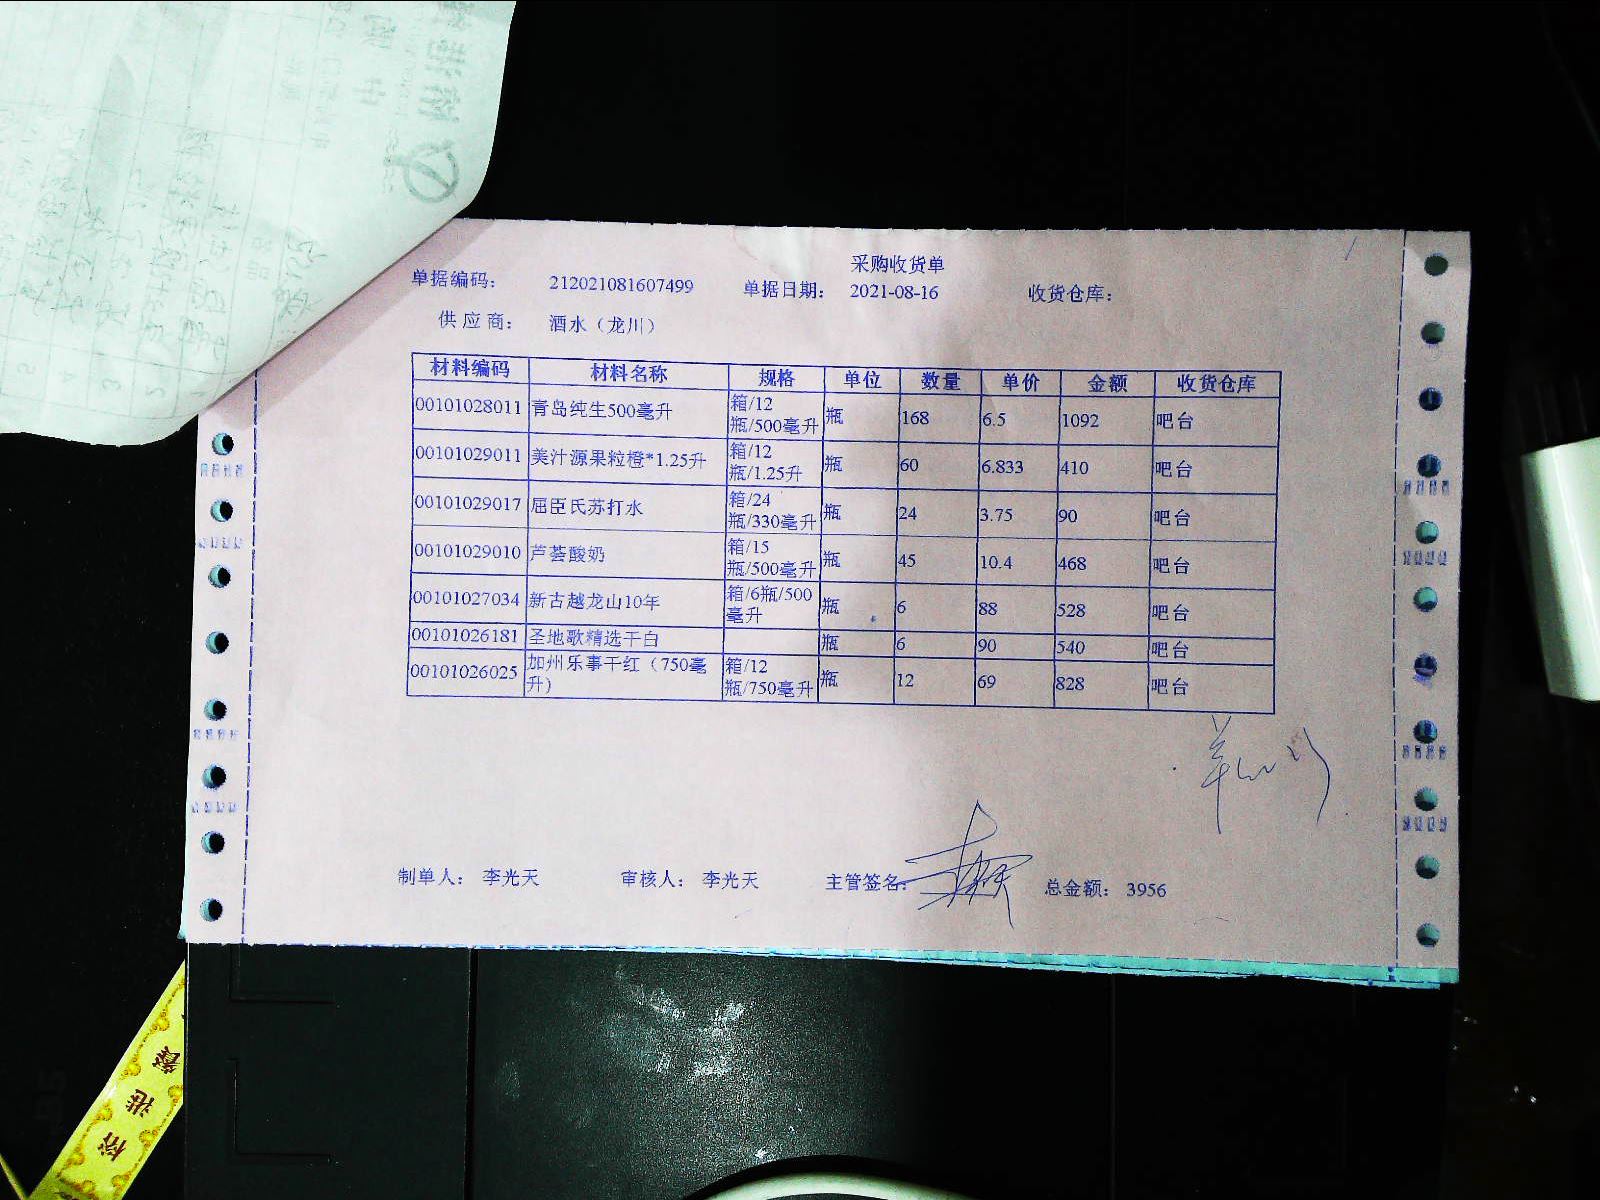 采购收货单
单据编码： 212021081607499 单据日期： 2021-08-16 收货仓库：
供应商： 酒水（龙川）
材料编码 材料名称 规格 单位 数量 单价 金额 收货仓库
00101028011 青岛纯生500毫升 箱/12瓶/500毫升 瓶 168 6.5 1092 吧台
00101029011 美汁源果粒橙*1.25升 箱/12瓶/1.25升 瓶 60 6.833 410 吧台
00101029017 屈臣氏苏打水 箱/24瓶/330毫升 瓶 24 3.75 90 吧台
00101029010 芦荟酸奶 箱/15瓶/500毫升 瓶 45 10.4 468 吧台
00101027034 新古越龙山10年 箱/6瓶/500毫升 瓶 6 88 528 吧台
00101026181 圣地歌精选干白 瓶 6 90 540 吧台
00101026025 加州乐事干红（750毫升） 箱/12瓶/750毫升 瓶 12 69 828 吧台
制单人： 李光天 审核人： 李光天 主管签名： 总金额： 3956